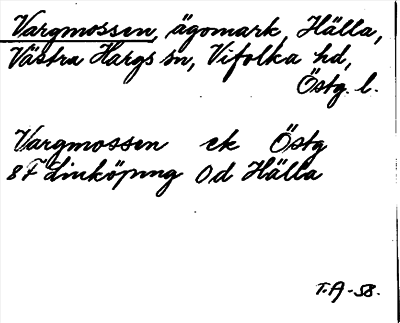 Vargmossen, ägomark, Hälla,
Västra Hargs sn, Vifolka hd,
Östg. l.
Vargmossen ek Östg
8F Linköping 0d Hälla
T.A-58.